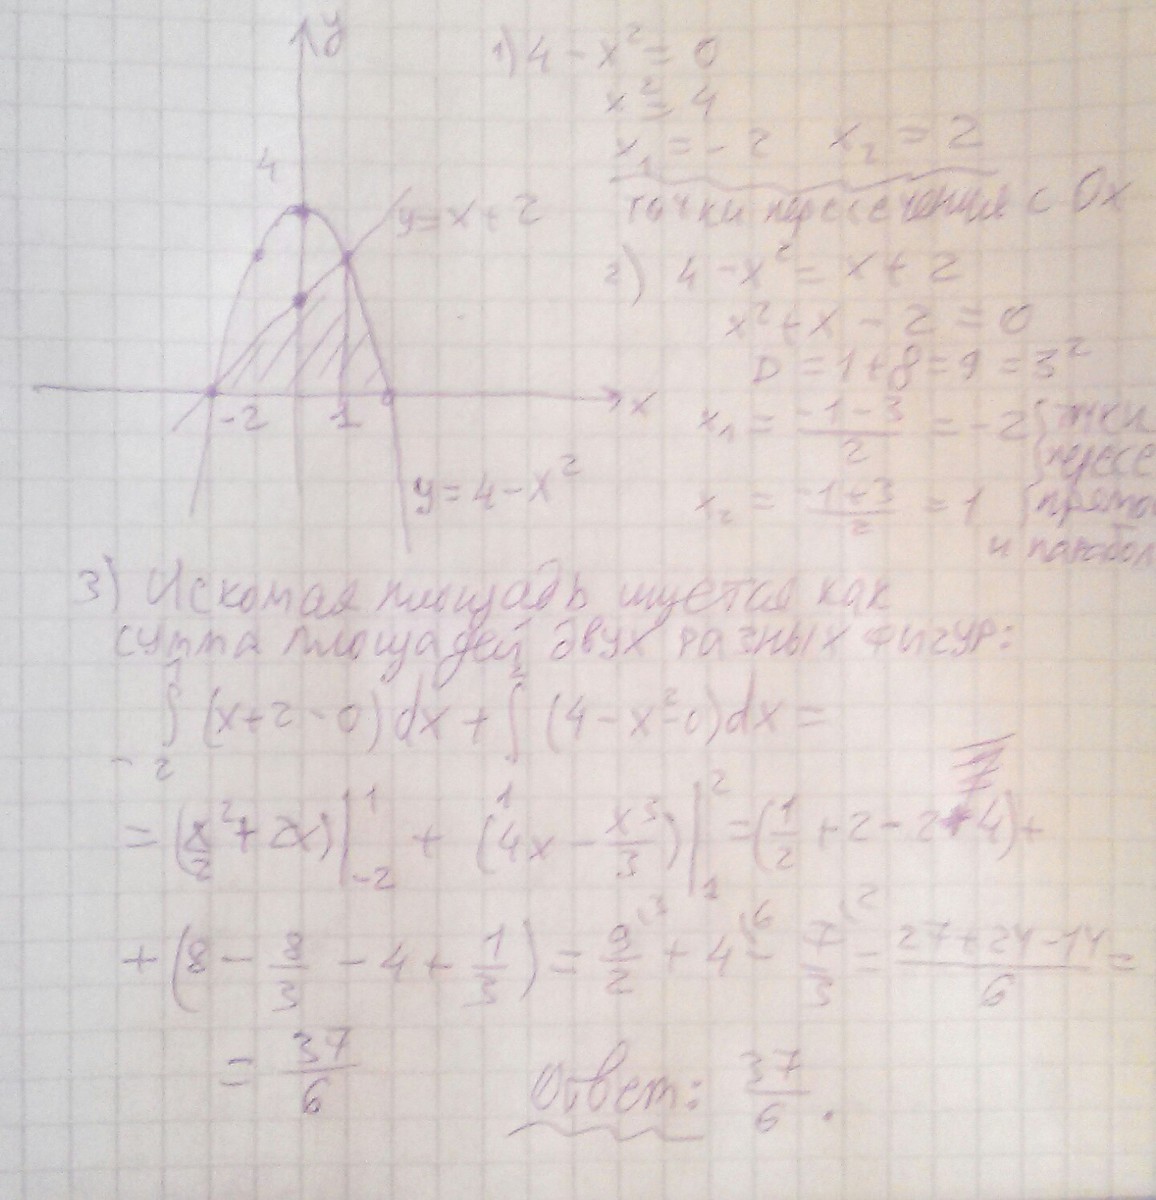 y
4
y=x+2
-2
1
x
y=4-x²
1) 4-x²=0
x²=4
x₁=-2 x₂=2
точки пересечения с Ox
2) 4-x²=x+2
x²+x-2=0
D=1+8=9=3²
x₁ = (-1-3)/2 = -2 } тчки
пересе
x₂ = (-1+3)/2 = 1 } прямо
и парабол
3) Искомая площадь ищется как
сумма площадей двух разных фигур:
∫₋₂¹ (x+2-0)dx + ∫₁² (4-x²-0)dx =
= (x²/2+2x)|₋₂¹ + (4x - x³/3)|₁² = (1/2+2-2+4)+
+ (8 - 8/3 - 4 + 1/3) = 9/2 (3 + 4 (6 - 7/3 (2 = (27+24-14)/6 =
= 37/6 Ответ: 37/6.